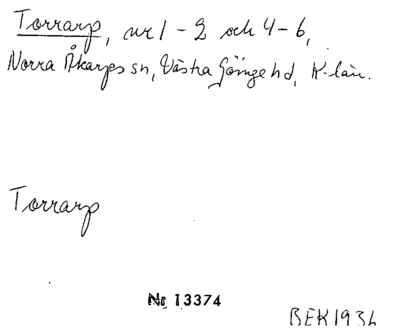 Torrarp, nr 1-2 och 4-6,
Norra Åkarps sn, Västra Göinge hd, K-län.
Torrarp
№ 13374
BEK 1936